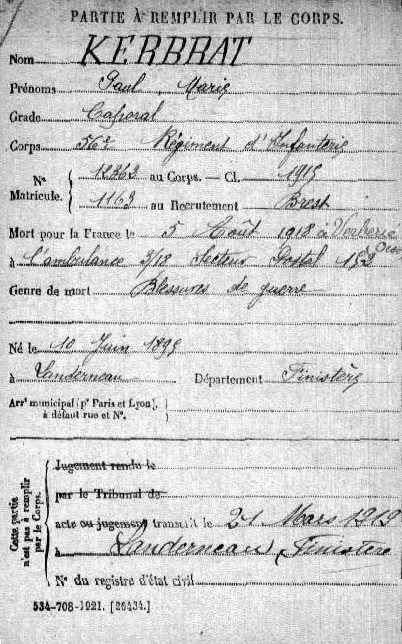 PARTIE À REMPLIR PAR LE CORPS.
Nom KERBRAT
Prénoms Paul Marie
Grade Caporal
Corps 56e Régiment d'Infanterie
N° Matricule. 12363 au Corps. — Cl. 1915
1163 au Recrutement Brest
Mort pour la France le 5 Août 1918 à Verberie Oise
à l'ambulance 3/18 Secteur Postal 152
Genre de mort Blessures de guerre
Né le 10 Juin 1895
à Landerneau Département Finistère
Arrt municipal (pr Paris et Lyon),
à défaut rue et N°.
Cette partie n'est pas à remplir par le Corps.
Jugement rendu le
par le Tribunal de
acte ou jugement transcrit le 21 Mars 1919
à Landerneau, Finistère
N° du registre d'état civil
534-708-1921. [26434.]